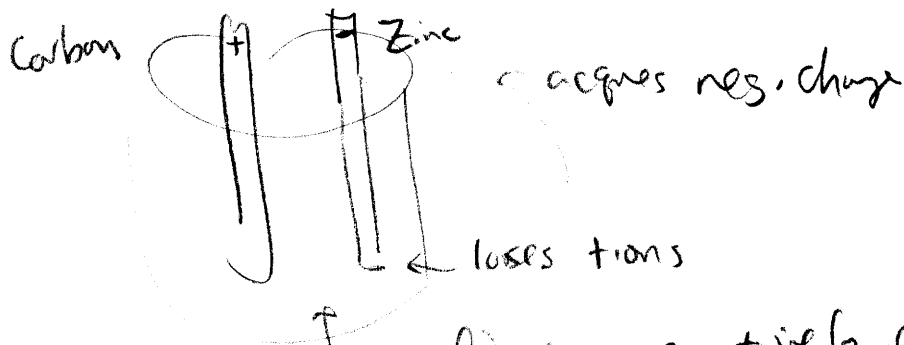 Carbon + - Zinc
acques neg. charge
← loses +ions
↑